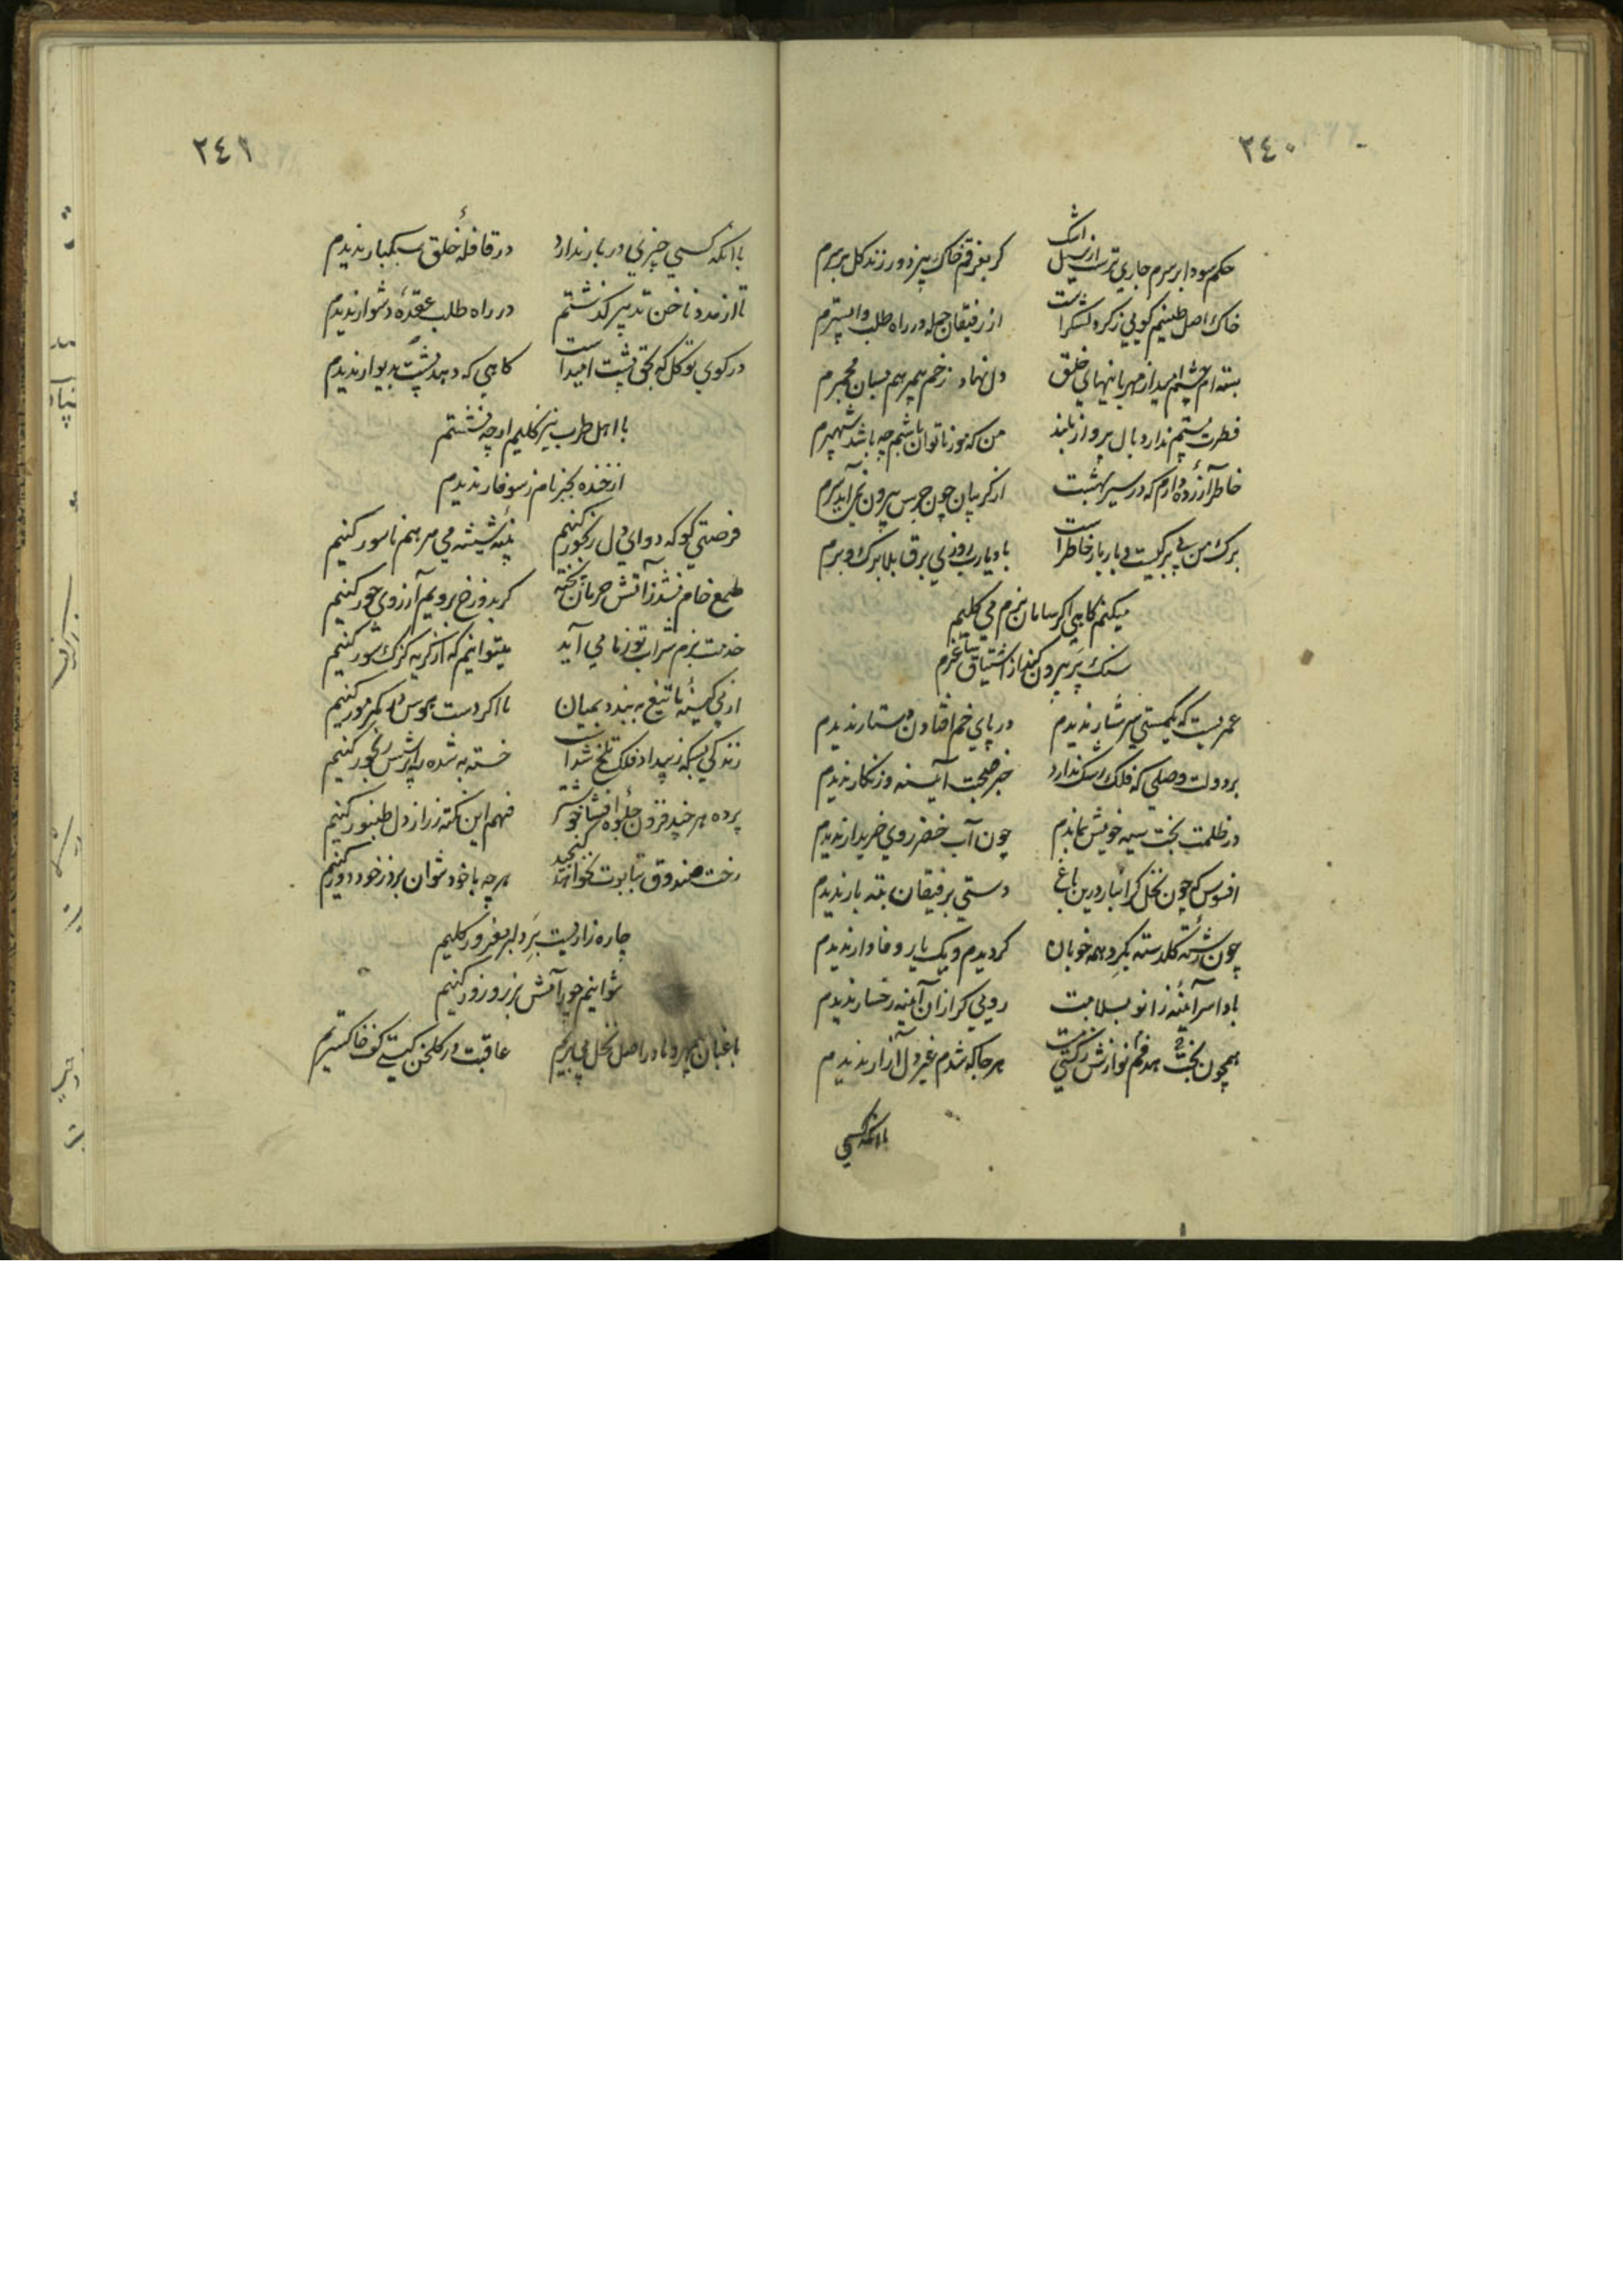 ٢٤٠
حکم سودا بر سرم جاری ترست از سیل اشک
کر بفرقم خاک بیزد ور زند کل بر سرم
خاک اصل طینتم کویی ز کرد لشکرست
از رفیقان جمله در راه طلب واپسترم
بسته ام چشم امید از مهربانیهای خلق
دل نهاد زخم بی مرهم بسان مجمرم
فطرت پستم ندارد بال پرواز بلند
من که مور ناتوان باشم چه باشد شهپرم
خاطر آزرده دارم که در سیر بهشت
از کریبان چون جرس بیرون نمی آید سرم
برک من بی برکیست و بار بار خاطرست
باد یارب روزی برق بلا برک و برم
میکنم کاهی اکر سامان بزم می کلیم
سنک پر بیرون کند از اشتیاق ساغرم
عمریست که یکمستی سرشار ندیدم
در پای خم افتادن دستار ندیدم
بر دولت وصلی که فلک رشک ندارد
جز صحبت آیینه و زنکار ندیدم
در ظلمت بخت سیه خویش بماندم
چون آب خضر روی خریدار ندیدم
افسوس که چون نخل کرانبار درین باغ
دستی برفیقان بته بار ندیدم
چون رشته کلدسته بکرد همه خوبان
کردیدم و یک یار وفادار ندیدم
بادا سر آئینه زانو بسلامت
رویی کر ازان آینه رخسار ندیدم
همچون نی بختم همه دم نوازش نکشتست
هر جا که شدم غیر دل آزار ندیدم
باآنکه کسی
٢٤١
باآنکه کسی چیزی در بار ندارد
در قافلهٔ خلق سبکبار ندیدم
تا از مدد ناخن تدبیر کذشتم
در راه طلب عقدهٔ دشوار ندیدم
در کوی توکل که بحق پشت امیدست
کاهی که دهد پشت بدیوار ندیدم
با اهل طرب نیز کلیم ار چه نشستم
از خنده بجز نام ز سوفار ندیدم
فرصتی کو که دوای دل رنجور کنیم
پنبهٔ شیشه می مرهم ناسور کنیم
طمع خام نشد ز آتش حرمان پخته
کر بدوزخ برویم آرزوی حور کنیم
خدمت بزم شراب تو ز ما می آید
میتوانیم که از کریه کزک شور کنیم
از پی کینهٔ ما تیغ ببندد بمیان
ما اکر دست هوس در کمر مور کنیم
زندکی بسکه ز بیداد فلک تلخ شدست
خسته به شده را پرسش رنجور کنیم
پرده هر چند فزون جلوه افشا خوشتر
فهم این نکته ز راز دل طنبور کنیم
رخت صندوق بتابوت نخواهد کنجید
هر چه با خود نتوان برد ز خود دور کنیم
چاره زاریست بر دلبر مغرور کلیم
نتوانیم چو رامش بزر و زور کنیم
باغبان دهر و ما در اصل نخل بی بریم
عاقبت در کلخن کیتی کف خاکستریم